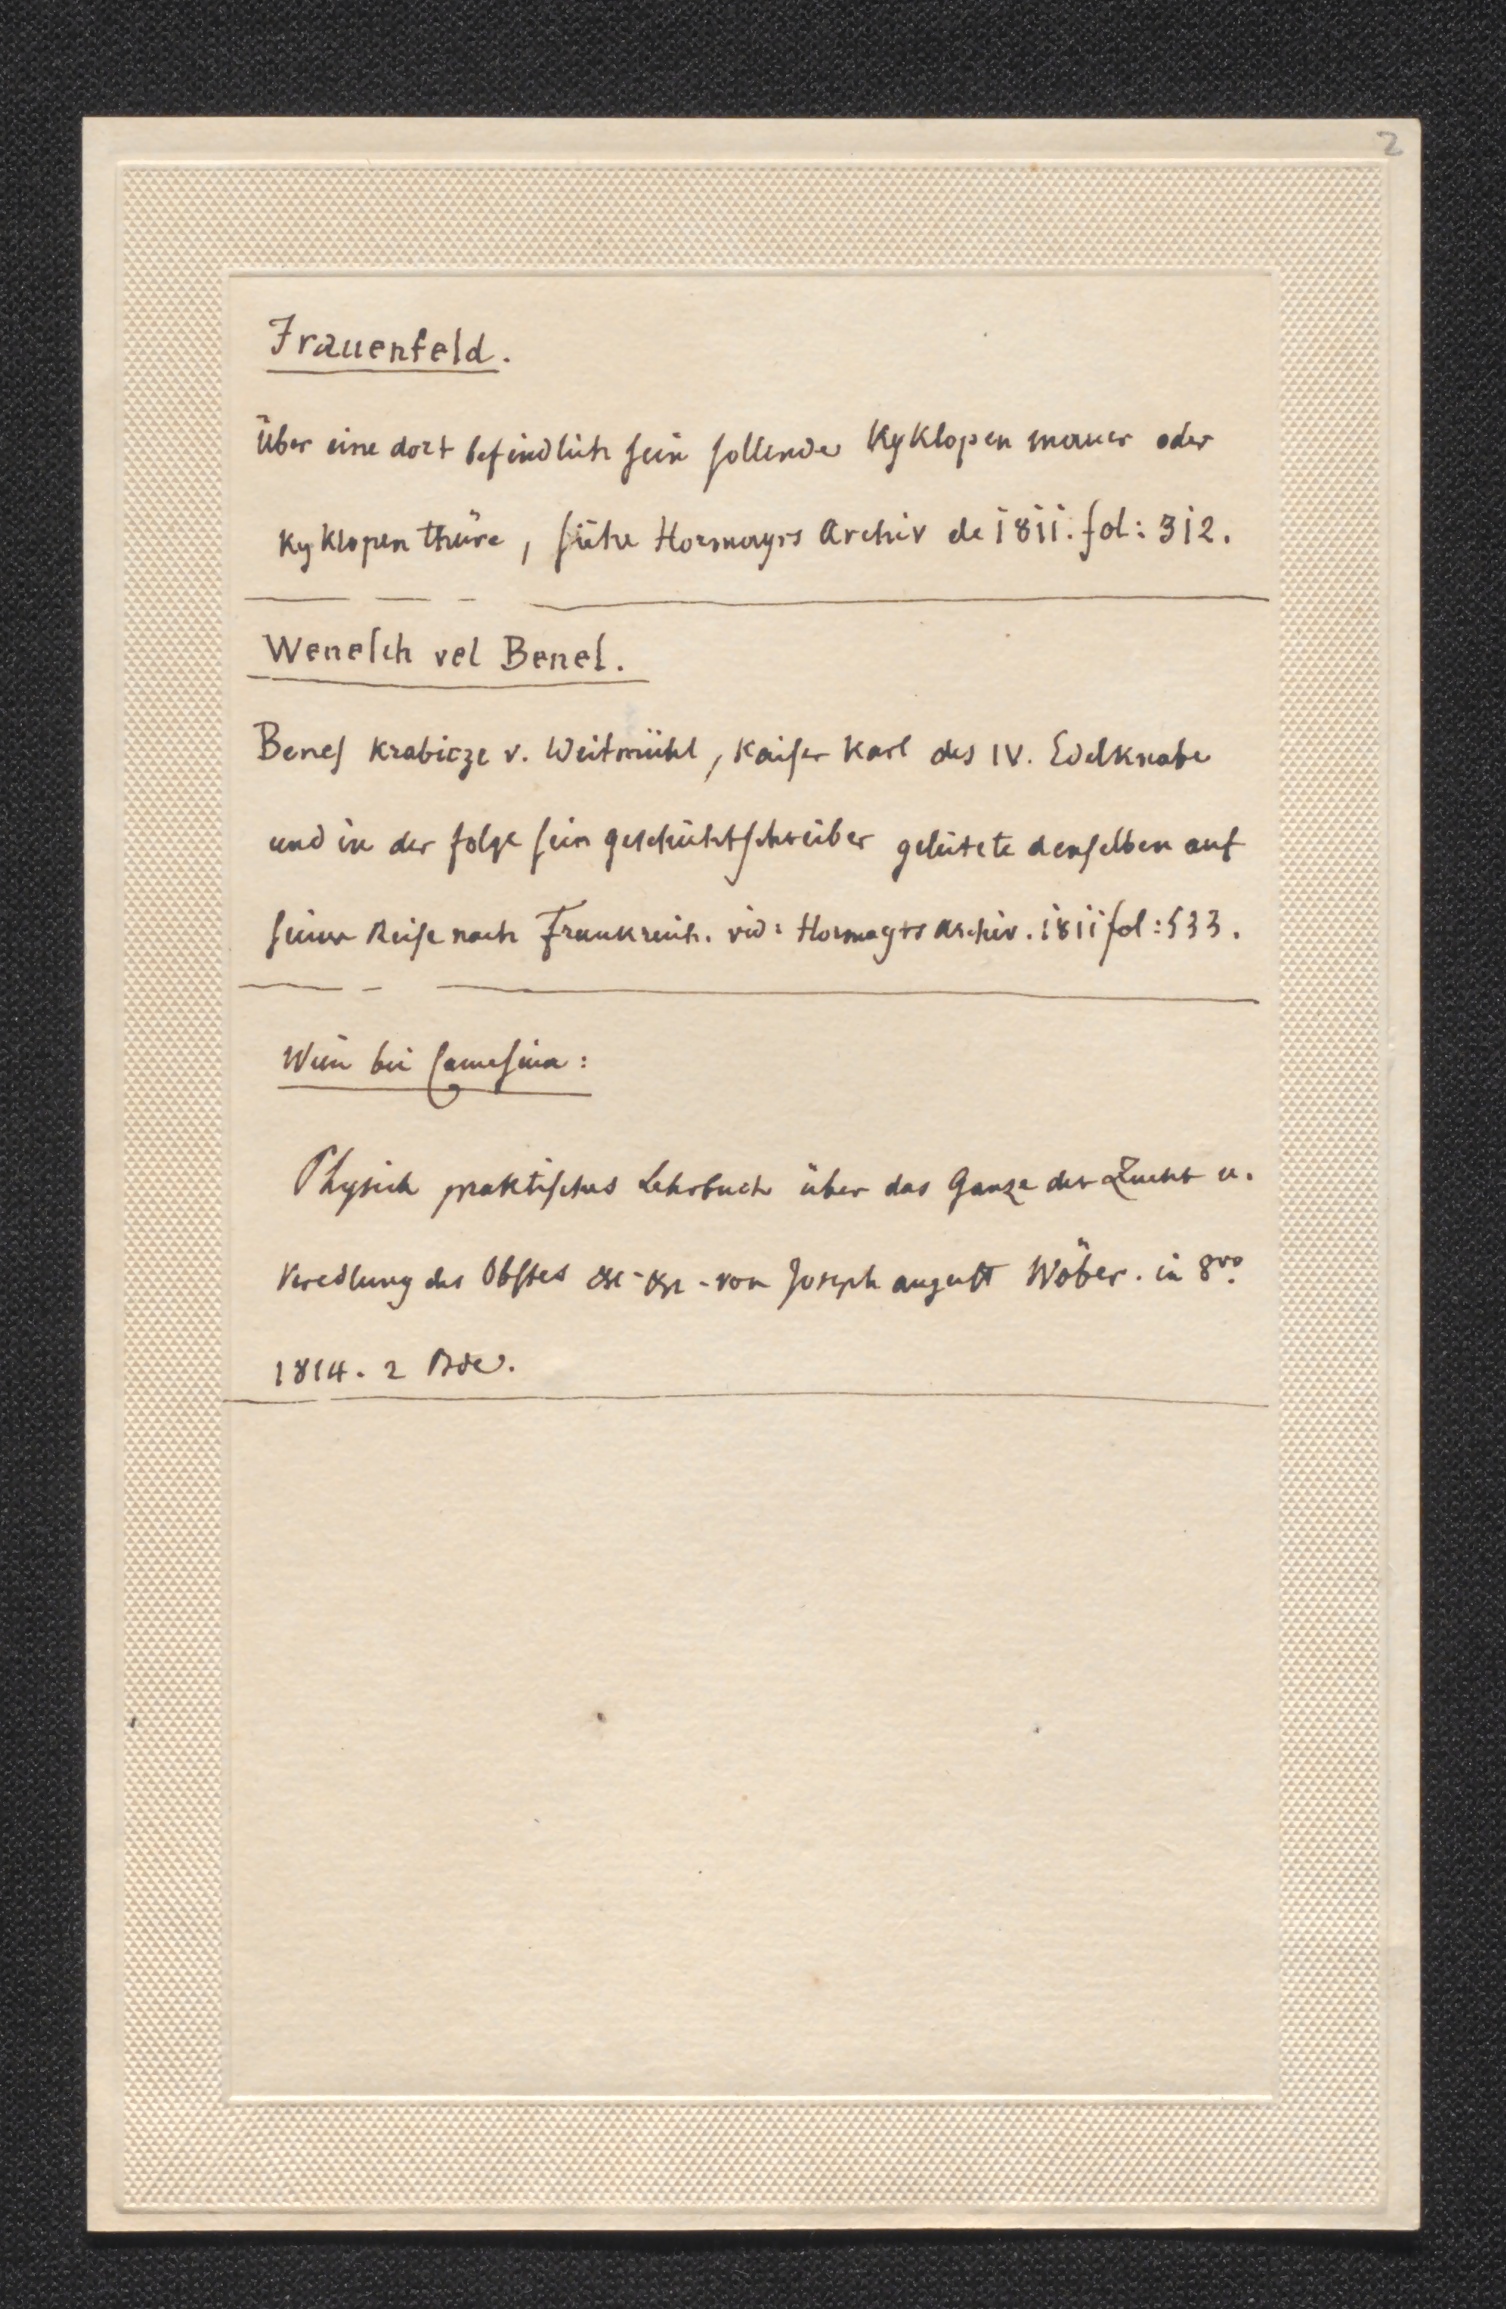 2
Frauenfeld.
Über eine dort befindlich sein sollende Kyklopen mauer oder
Kyklopen thüre, siehe Hormayrs Archiv de 1811. fol: 312.
Wenesch vel Benes.
Benes Krabicze v. Weitmühl, Kaiser Karl des IV. Edelknabe
und in der folge sein geschichtschreiber geleitete denselben auf
seiner Reise nach Frankreich. vid: Hormayrs archiv. 1811 fol: 533.
Wien bei Camesina:
Physich praktisches Lehrbuch über das Ganze der Zucht u.
Veredlung des Obstes &c - &c - von Joseph august Wöber. in 8vo.
1814. 2 Bde.